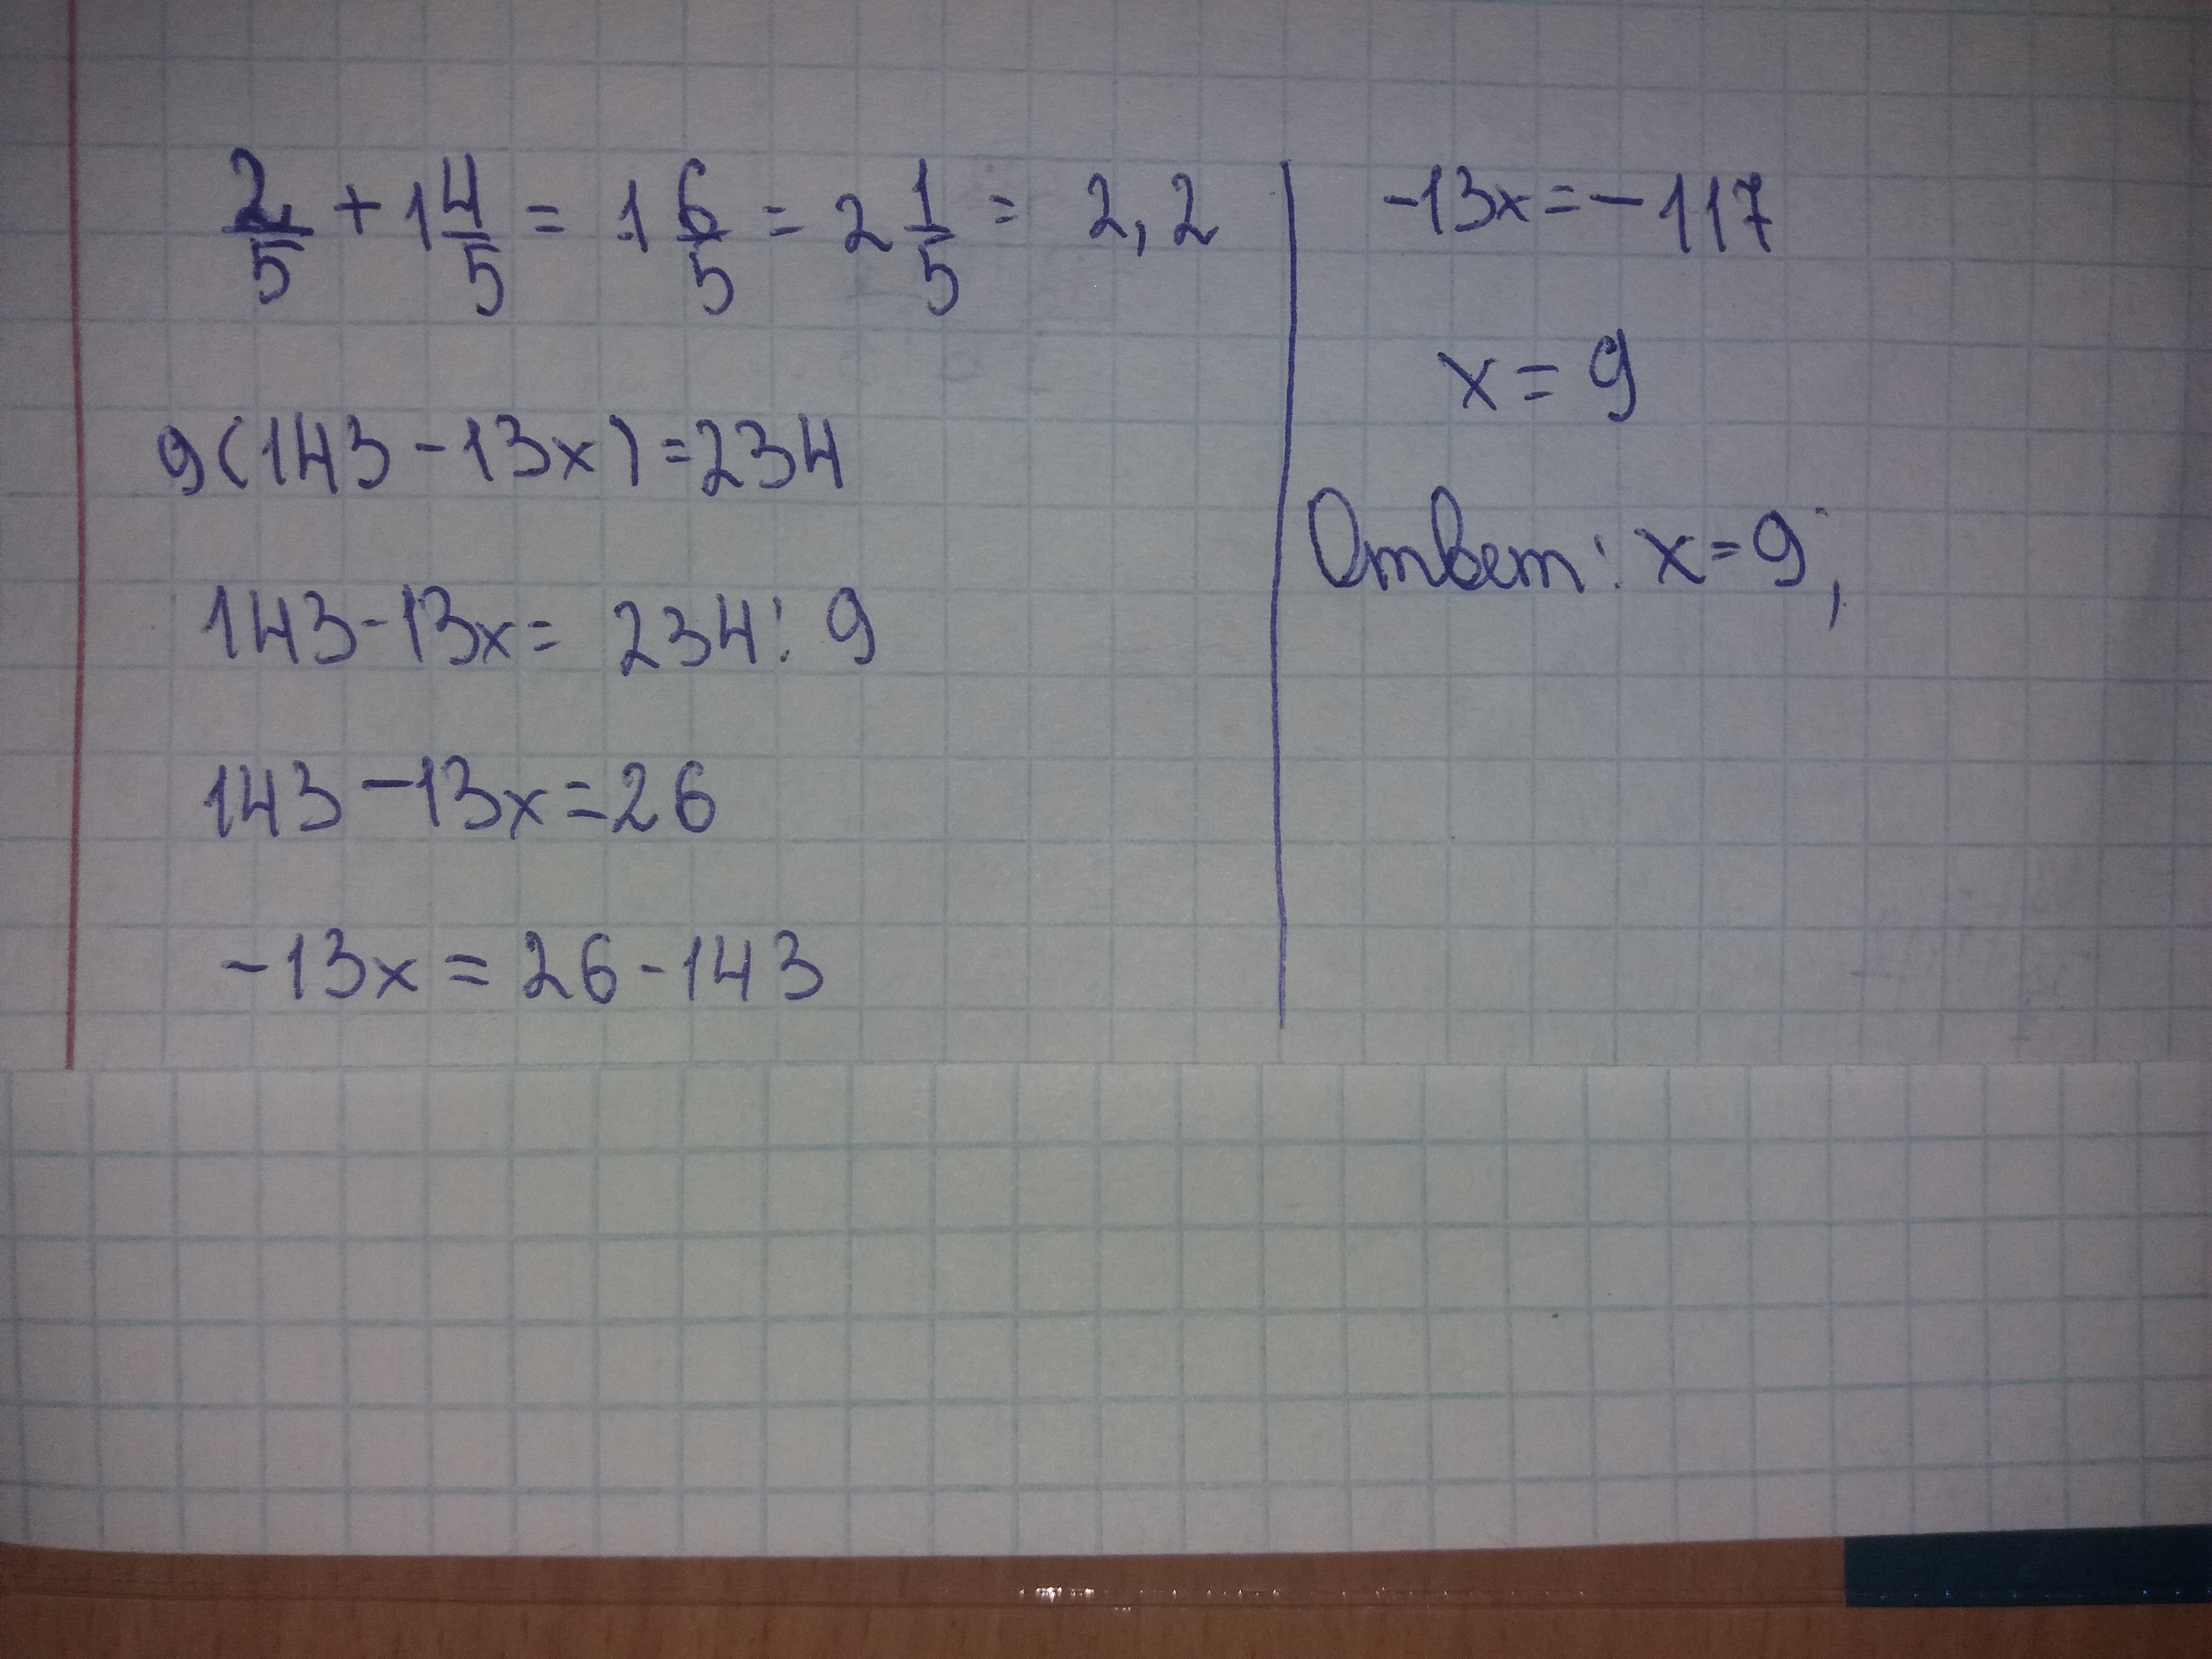 2/5 + 1 4/5 = 1 6/5 = 2 1/5 = 2,2
9(143 - 13x) = 234
143 - 13x = 234 : 9
143 - 13x = 26
-13x = 26 - 143
-13x = -117
x = 9
Ответ: x = 9;